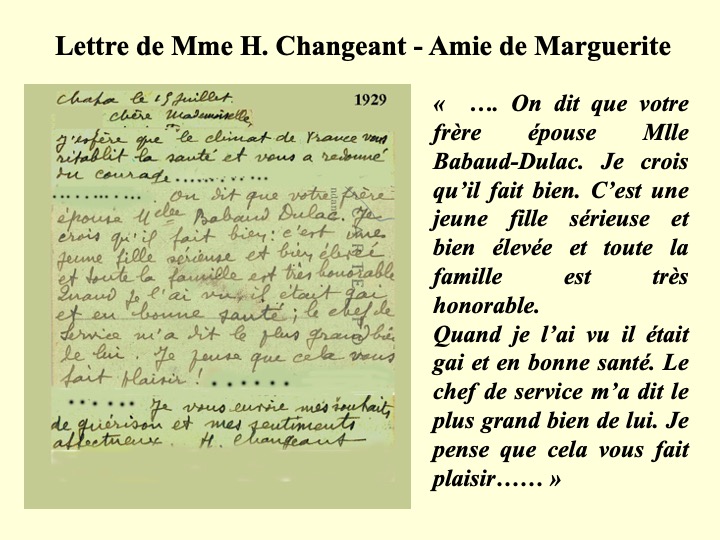 Lettre de Mme H. Changeant - Amie de Marguerite
Chapa le 15 Juillet.
1929
Chère Mademoiselle,
J'espère que le climat de France vous
rétablit la santé et vous a redonné
du courage............
............ On dit que votre frère
épouse Mlle Babaud Dulac. Je
crois qu'il fait bien : c'est une
jeune fille sérieuse et bien élevée
et toute la famille est très honorable
Quand je l'ai vu, il était gai
et en bonne santé ; le chef de
service m'a dit le plus grand bien
de lui. Je pense que cela vous
fait plaisir ! ......
...... Je vous envoie mes souhaits
de guérison et mes sentiments
affectueux. H. Changeant
« …. On dit que votre
frère épouse Mlle
Babaud-Dulac. Je crois
qu’il fait bien. C’est une
jeune fille sérieuse et
bien élevée et toute la
famille est très
honorable.
Quand je l’ai vu il était
gai et en bonne santé. Le
chef de service m’a dit le
plus grand bien de lui. Je
pense que cela vous fait
plaisir…… »